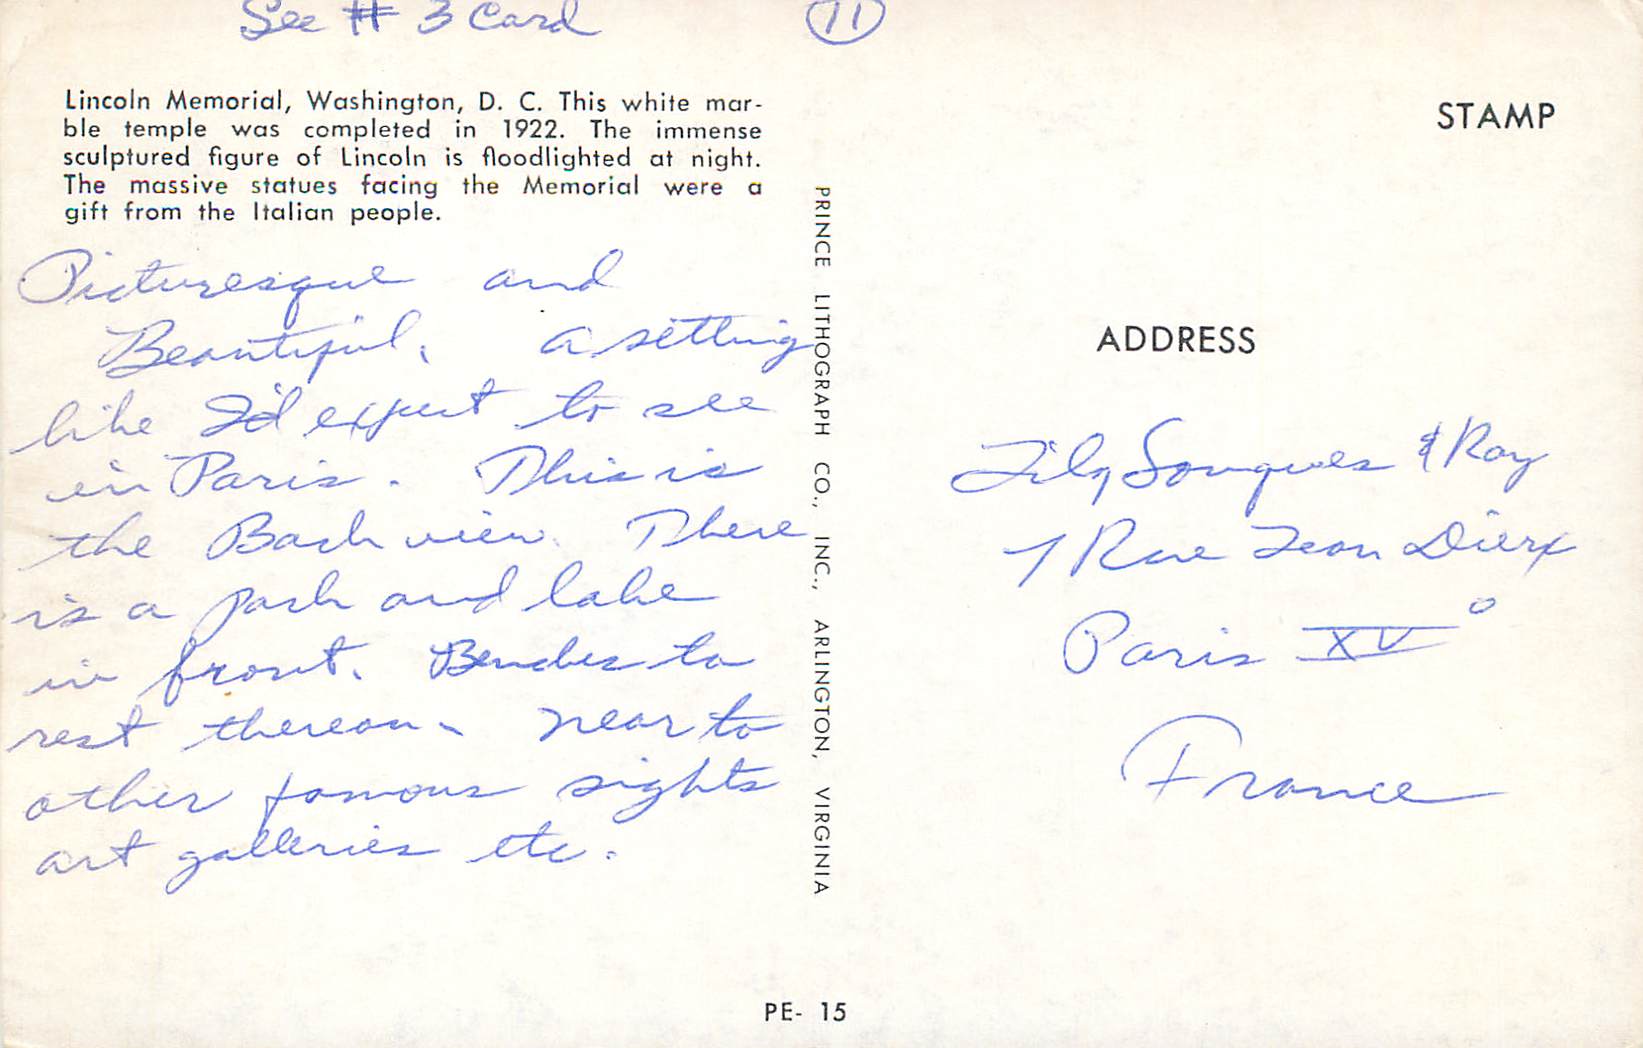 See # 3 Card
11
Lincoln Memorial, Washington, D. C. This white mar-
ble temple was completed in 1922. The immense
sculptured figure of Lincoln is floodlighted at night.
The massive statues facing the Memorial were a
gift from the Italian people.
Picturesque and
Beautiful. a setting
like I'd expect to see
in Paris. This is
the Back view. There
is a park and lake
in front. Benches to
rest thereon. Near to
other famous sights
art galleries etc.
PRINCE LITHOGRAPH CO., INC., ARLINGTON, VIRGINIA
PE- 15
STAMP
ADDRESS
& Ray
7 Rue Jean Dierx
Paris XV°
France